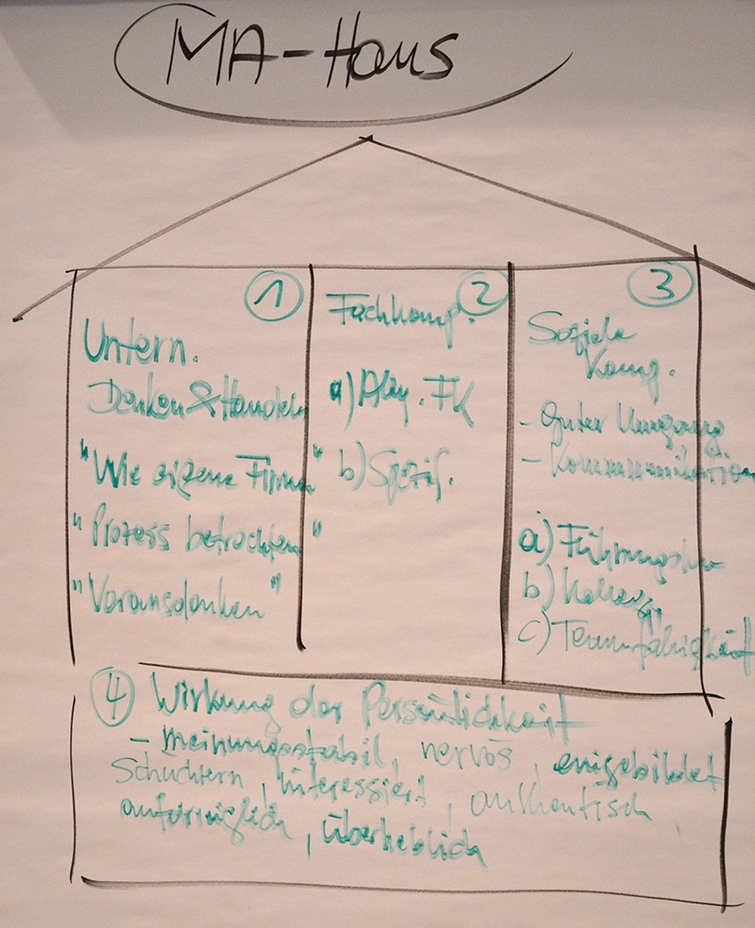 MA-Haus
1
Untern.
Denken & Handeln
"Wie eigene Firma"
"Prozess betrachten"
"Vorausdenken"
2
Fachkomp.
a) Allg. FK
b) Spezif.
3
Soziale
Komp.
- Guter Umgang
- Kommunikation
a)
b) Kolleg.
c) Teamfähigkeit
4 Wirkung der Persönlichkeit
- meinungsstabil, nervös, eingebildet
Schüchtern, interessiert, authentisch,
überheblich